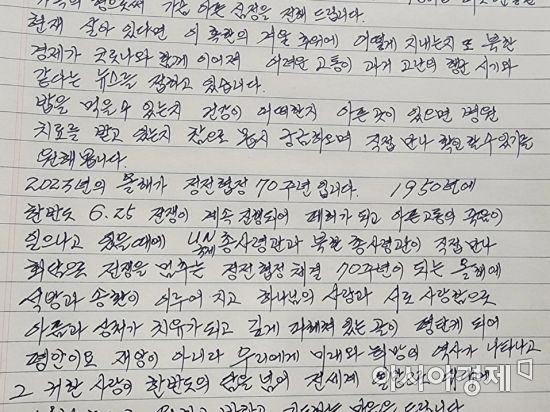 가족의 형으로써 가슴 아픈 심정을 전해 드립니다.
현재 살아 있다면 이 혹한의 겨울 추위에 어떻게 지내는지 또 북한
경제가 코로나와 함께 이어져 어려운 고통이 과거 고난의 행군 시기와
같다는 뉴스를 접하고 있습니다.
밥을 먹을 수 있는지 건강이 어떠한지 아픈 곳이 있으면 병원
치료를 받고 있는지 참으로 몹시 궁금하오며 직접 만나 확인할 수 있기를
원해 봅니다.
2023년의 올해가 정전협정 70주년 입니다. 1950년에
한반도 6.25 전쟁이 계속 진행되어 폐허가 되고 아픈 고통의 죽음이
일으나고 있을 때에 UN 국제 총사령관과 북한 총사령관이 직접 만나
회담으로 전쟁을 멈추는 정전협정 체결 70주년이 되는 올해에
석방과 송환이 이루어 지고 하나님의 사랑과 서로 사랑함으로
아픔과 상처가 치유가 되고 깊게 파해쳐 있는 곳이 평탄케 되어
평안이요 재앙이 아니라 우리에게 미래와 희망의 역사가 나타나고
그 귀한 사랑이 한반도의 삶을 넘어 전세계
아시아경제